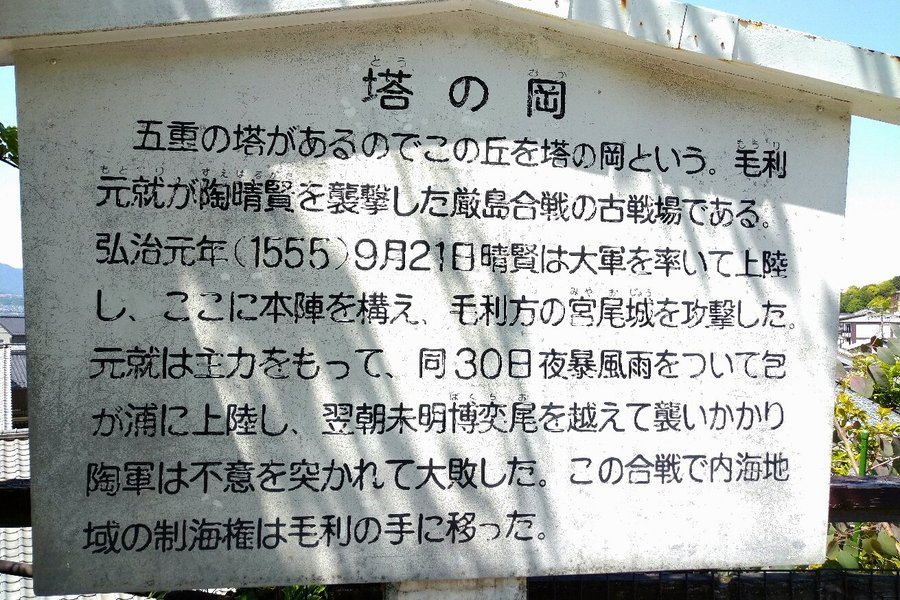 塔の岡
五重の塔があるのでこの丘を塔の岡という。毛利
元就が陶晴賢を襲撃した厳島合戦の古戦場である。
弘治元年(1555)9月21日晴賢は大軍を率いて上陸
し、ここに本陣を構え、毛利方の宮尾城を攻撃した。
元就は主力をもって、同30日夜暴風雨をついて包
が浦に上陸し、翌朝未明博奕尾を越えて襲いかかり
陶軍は不意を突かれて大敗した。この合戦で内海地
域の制海権は毛利の手に移った。